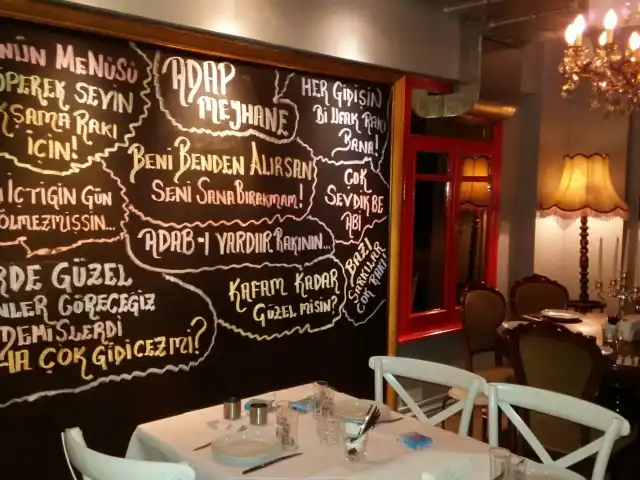 NÜN MENÜSÜ
ÖPEREK SEVİN
KŞAMA RAKI
İÇİN!
ADAP
MEYHANE
HER GİDİŞİN
Bİ UFAK RAKI
BANA!
BENİ BENDEN ALIRSAN
SENİ SANA BIRAKMAM!
ÇOK
SEVDİK BE
ABİ
İÇTİĞİN GÜN
ÖLMEZMİŞSİN...
ADAB-I VARDIIR RAKININ...
RDE GÜZEL
NLER GÖRECEĞİZ
DEMİŞLERDİ
HA ÇOK GİDİCEZ Mİ?
KAFAM KADAR
GÜZEL MİSİN?
BAZI
ŞARKILAR
ÇOK RAKI